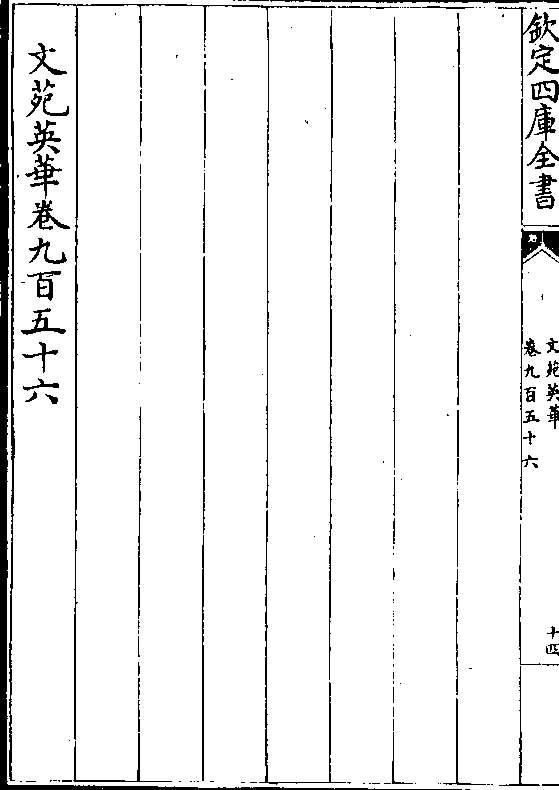 欽定四庫全書
文苑英華
卷九百五十六
十四
文苑英華卷九百五十六